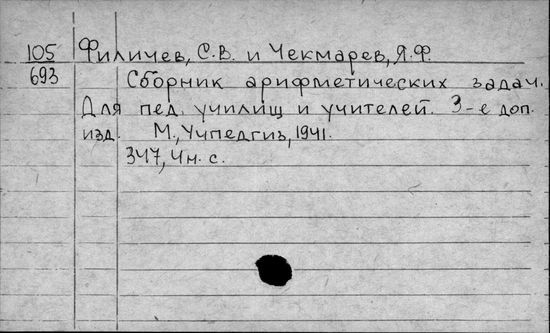 105 Филичев, С.В. и Чекмарев, Я.Ф.
693 Сборник арифметических задач.
Для пед. училищ и учителей. 3-е доп.
изд. М., Учпедгиз, 1941.
347, 4 н. с.